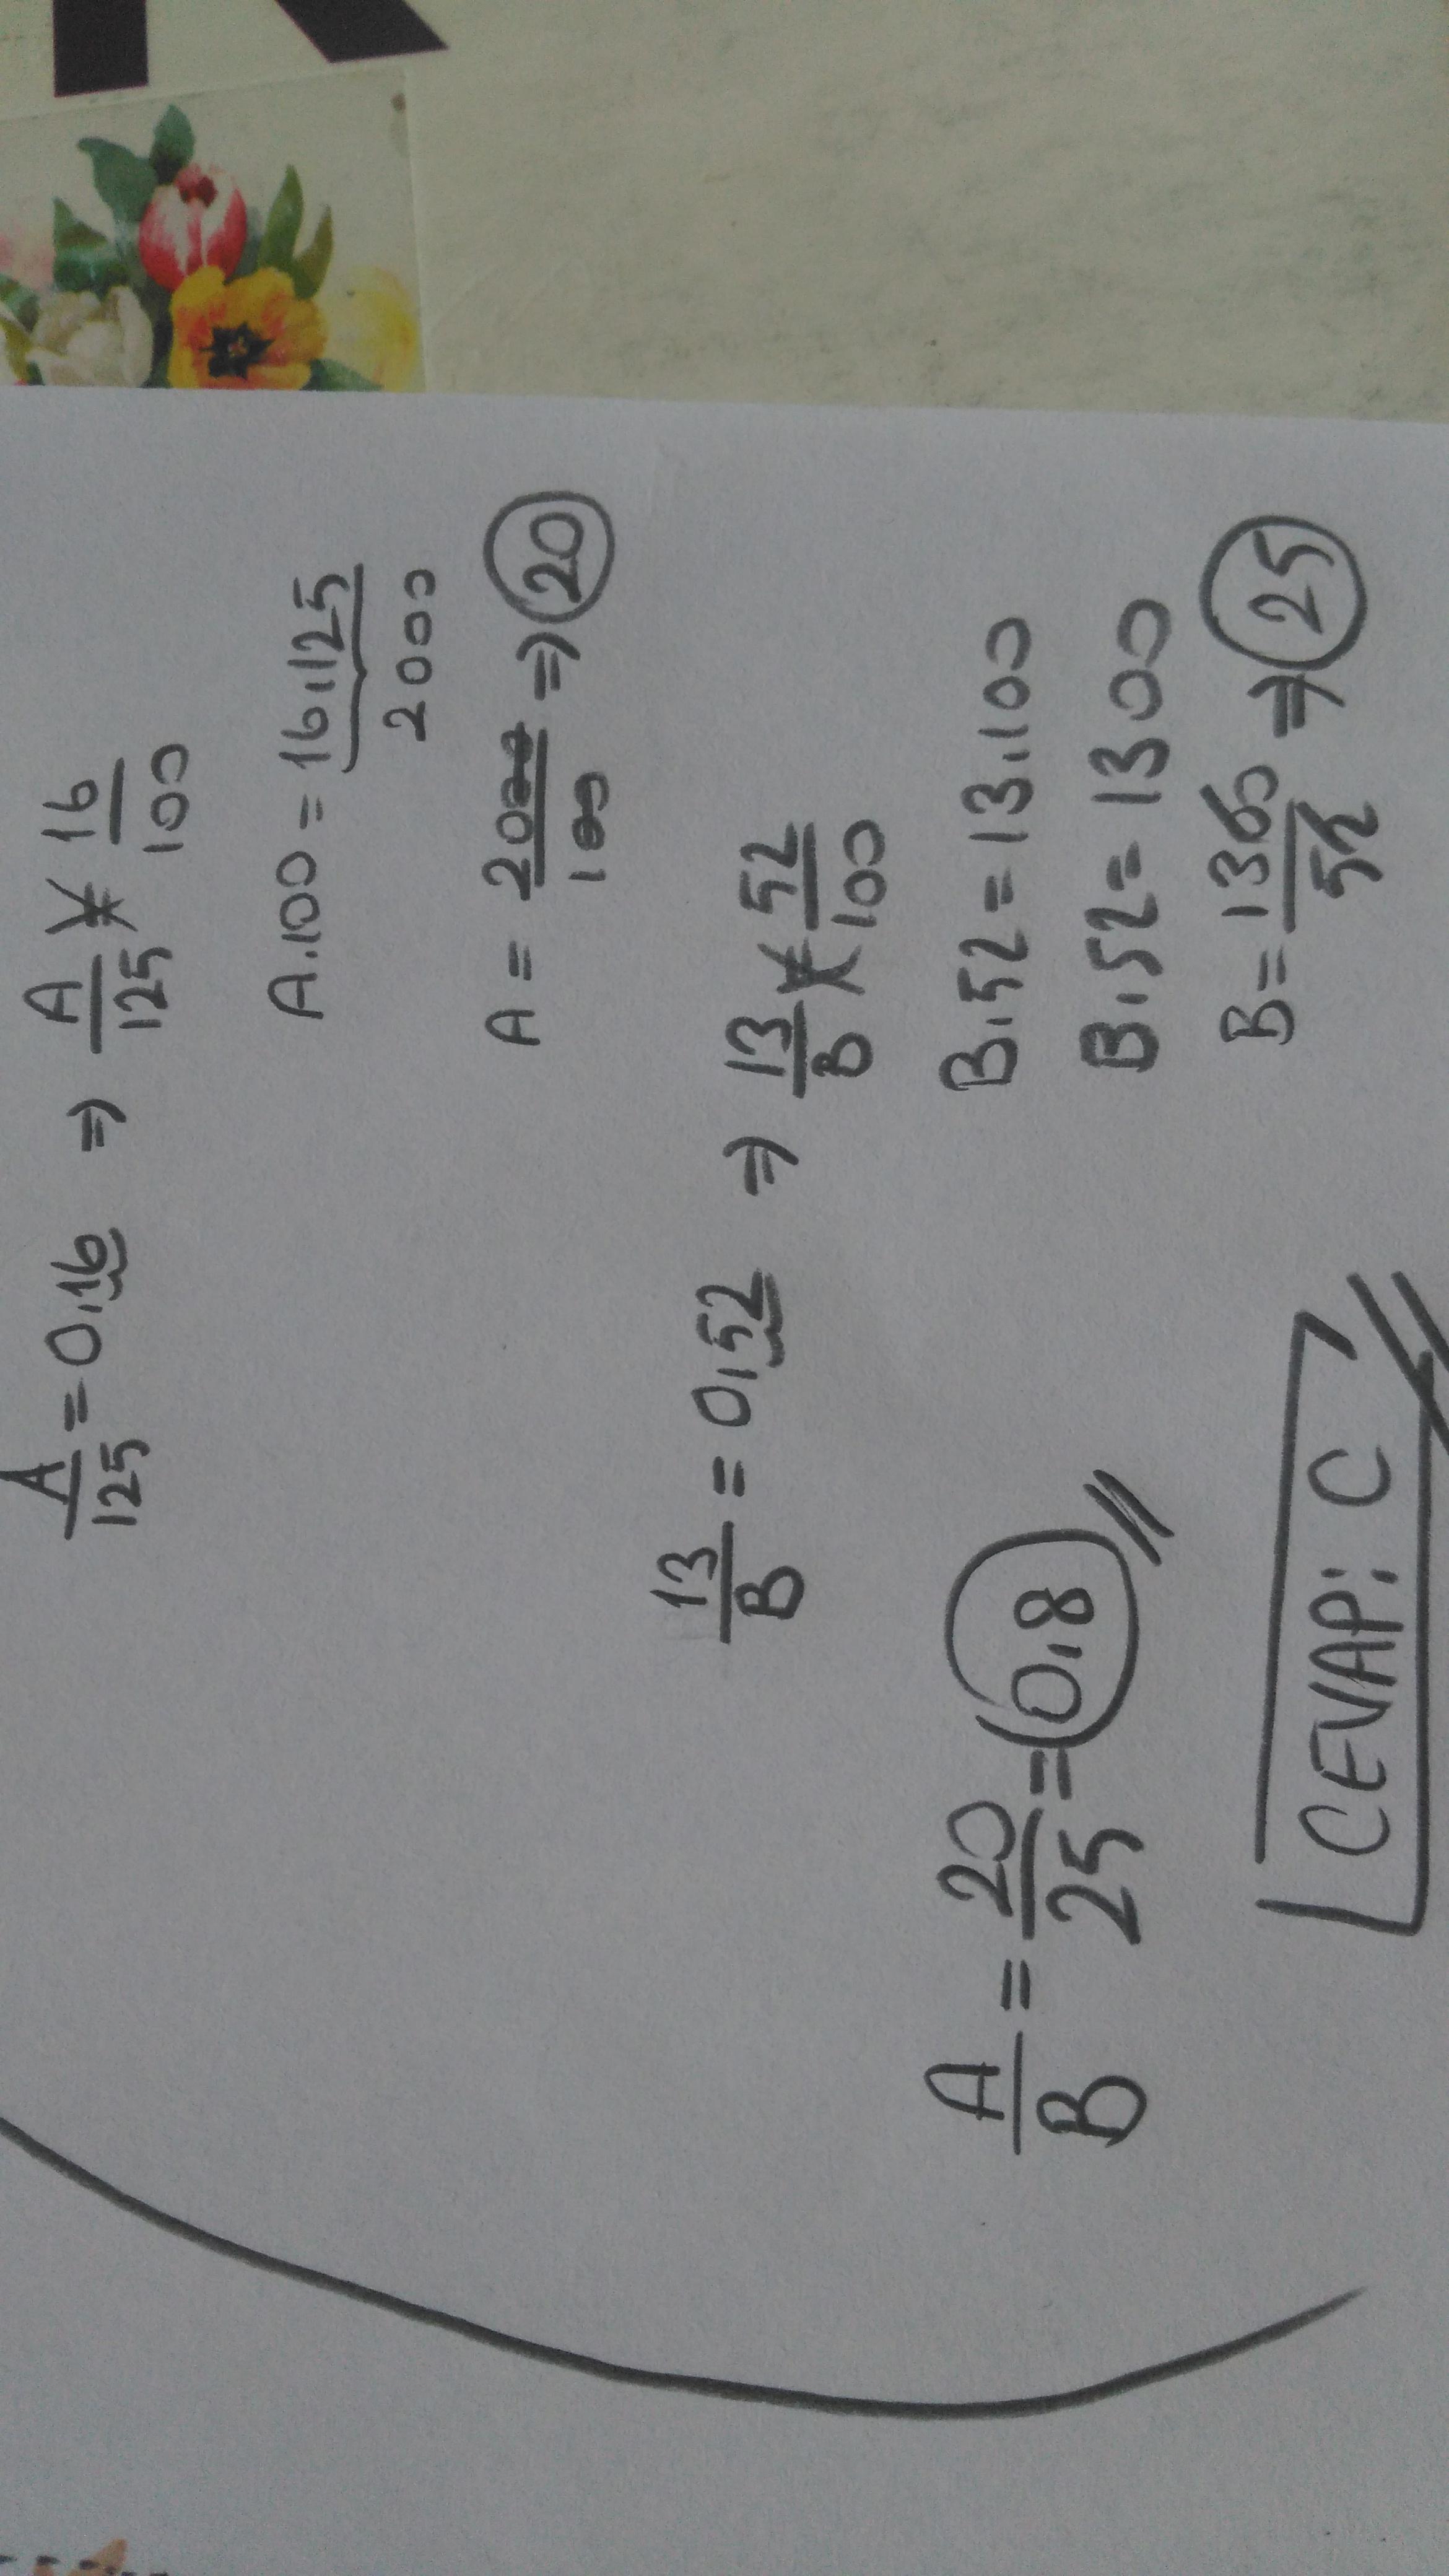 A/125 = 0,16 ⇒ A/125 = 16/100
A.100 = 16.125
2000
A = 2000/100 ⇒ 20
13/B = 0,52 ⇒ 13/B = 52/100
B.52 = 13.100
B.52 = 1300
B = 1300/52 ⇒ 25
A/B = 20/25 = 0,8
CEVAP: C